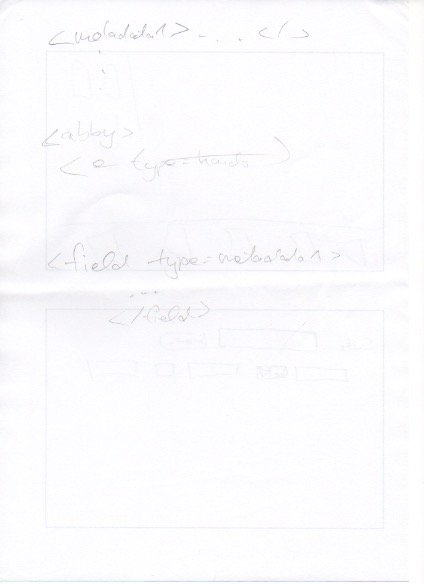 <metadata1> - . . </>
<abby>
<e type=
<field type=metadata1>
...
</field>